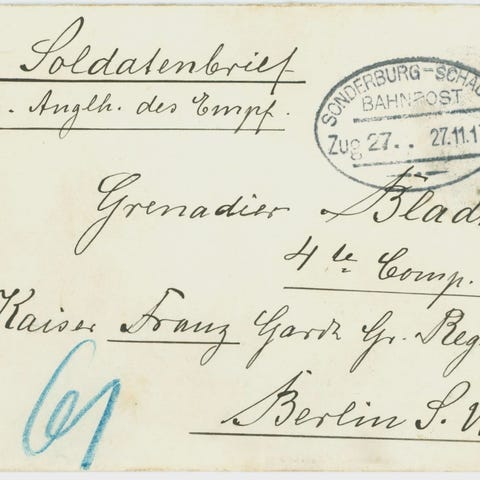 Soldatenbrief
. Anglh. des Empf.
SONDERBURG-SCHA
BAHNPOST
Zug 27.. 27.11.1
Grenadier Blad
4te Comp.
Kaiser Franz Garde Gr. Reg
Berlin S. W
61